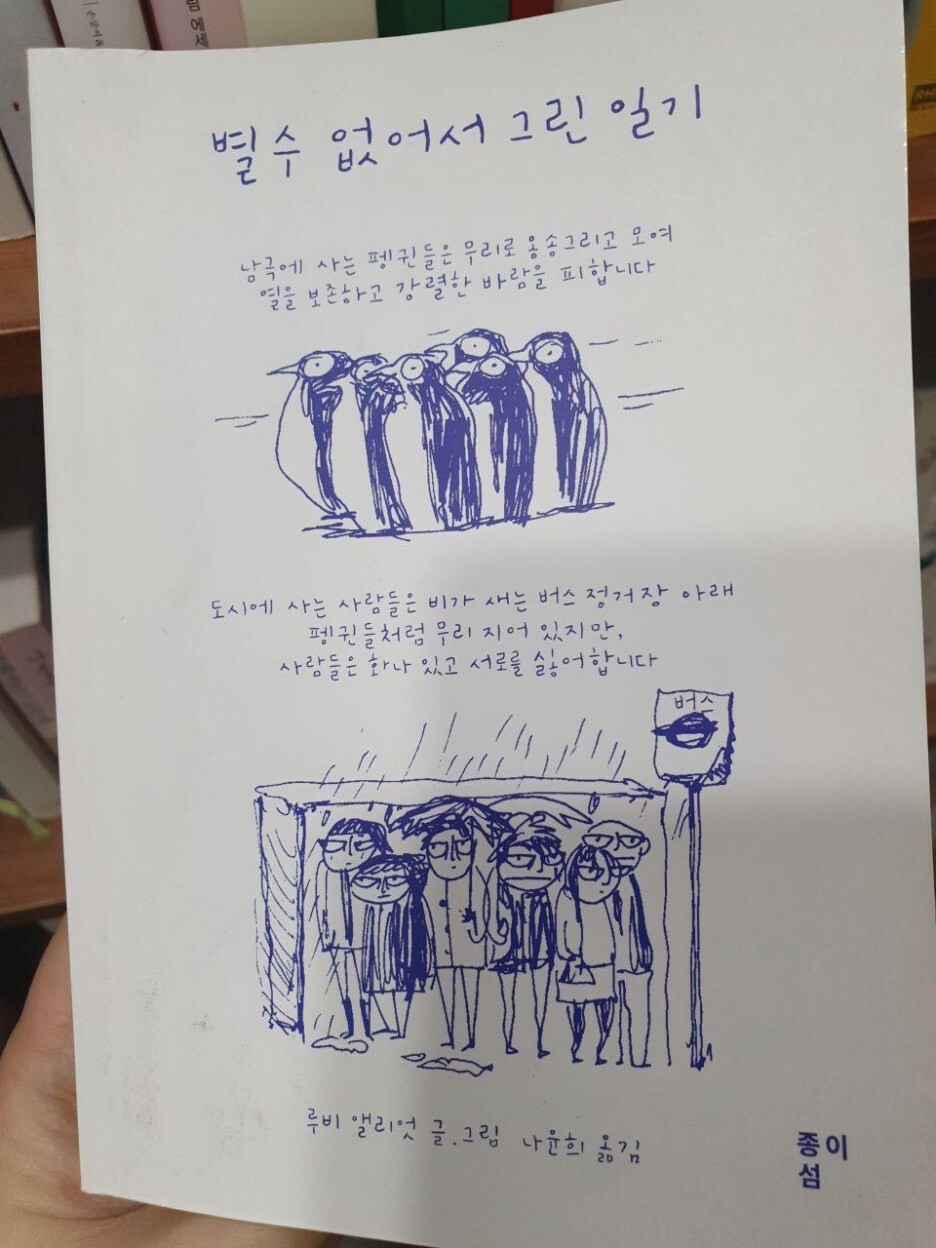 별 수 없어서 그린 일기
남극에 사는 펭귄들은 무리로 옹송그리고 모여
열을 보존하고 강렬한 바람을 피합니다
도시에 사는 사람들은 비가 새는 버스 정거장 아래
펭귄들처럼 무리 지어 있지만,
사람들은 화나 있고 서로를 싫어합니다
버스
루비 앨리엇 글.그림 나윤희 옮김
종이
섬